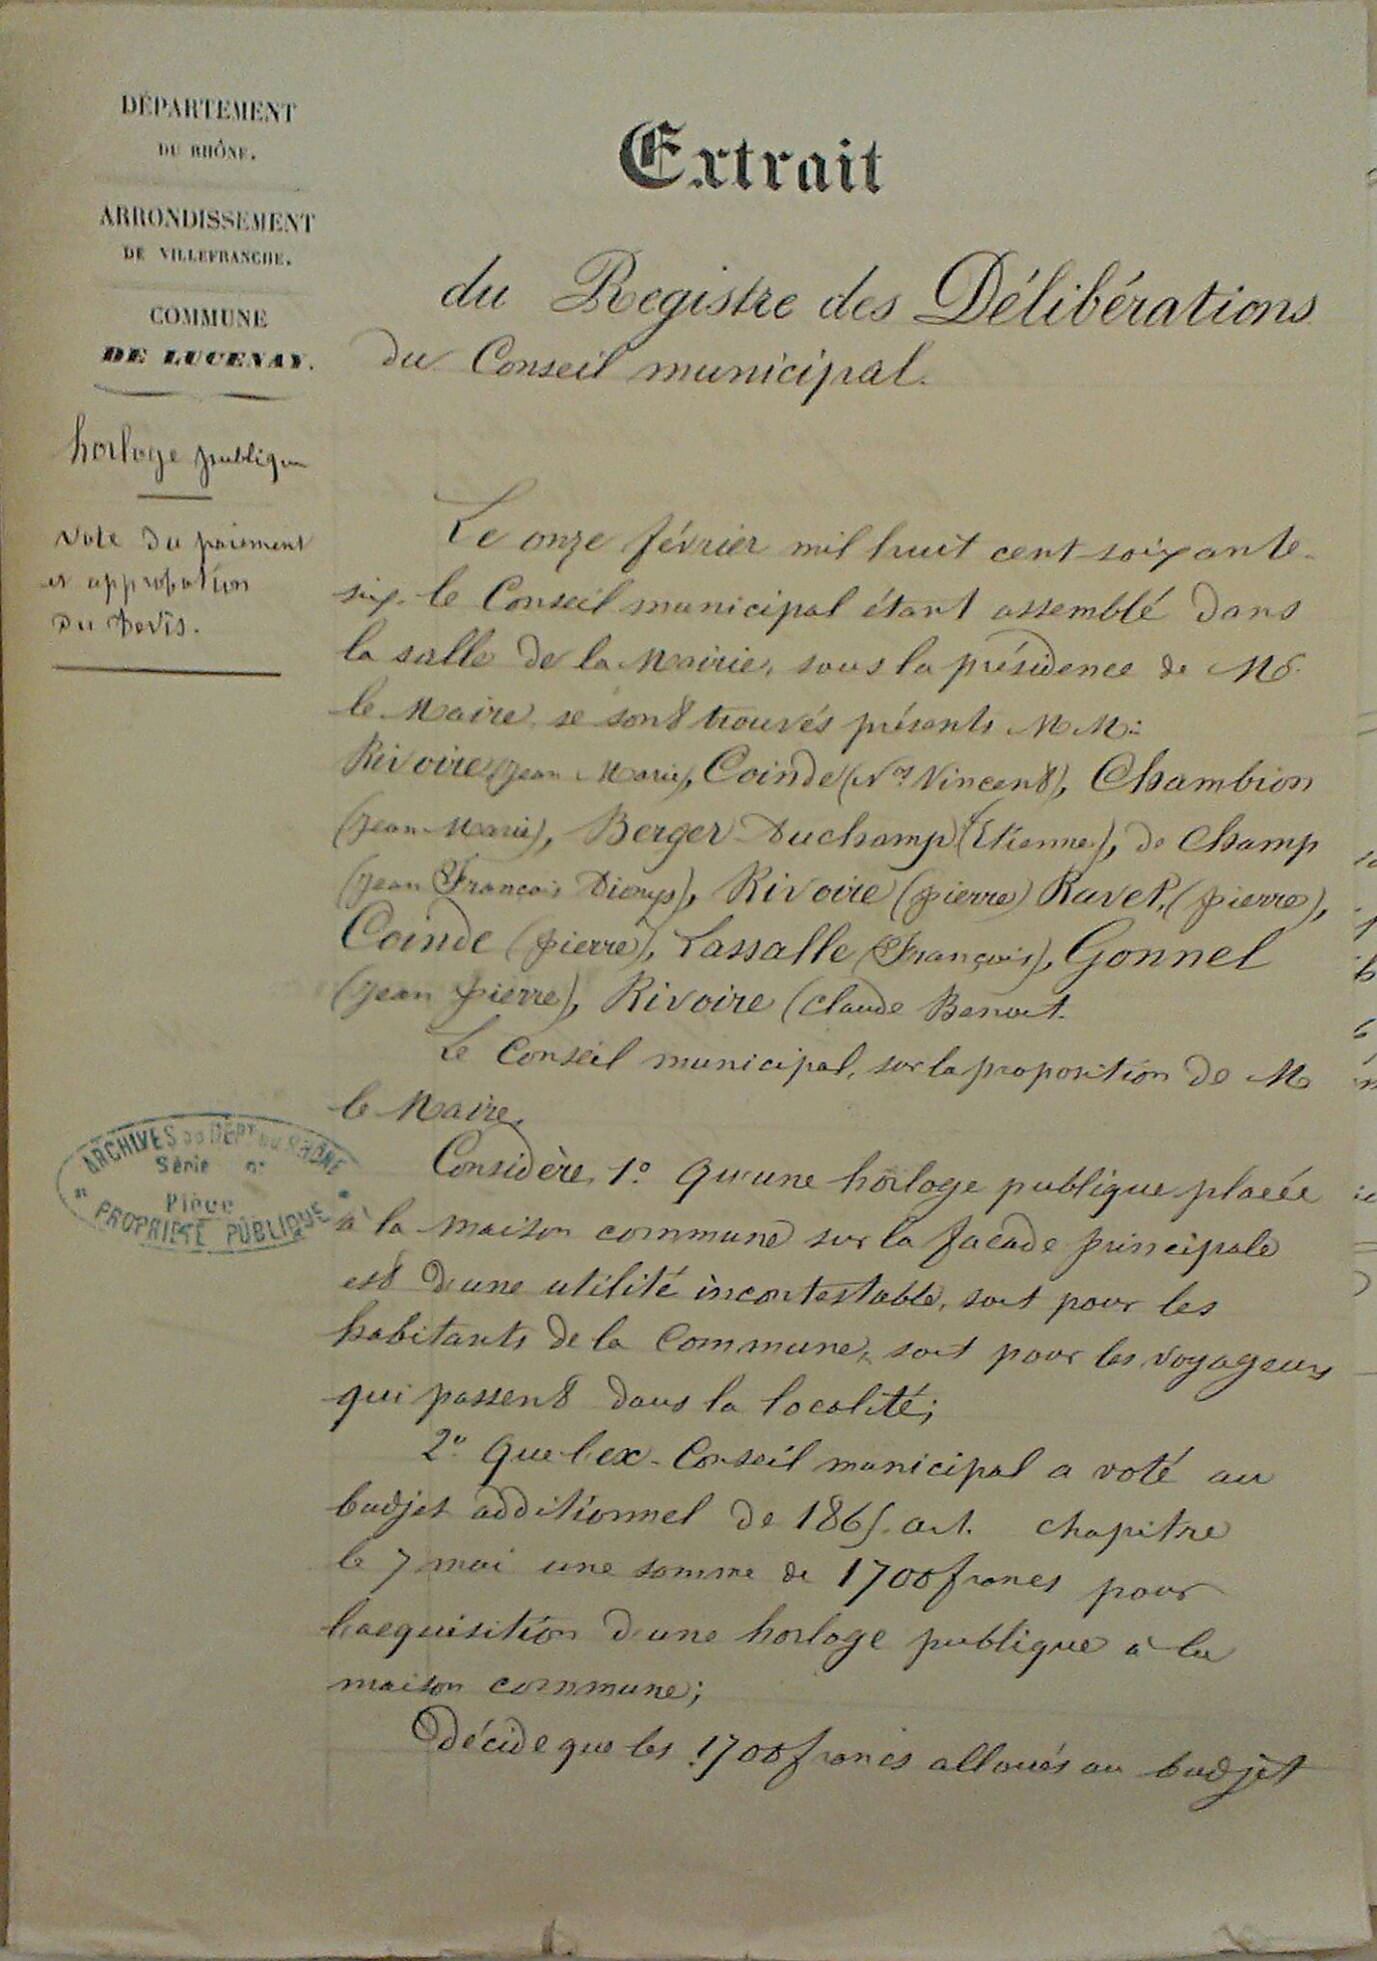 DÉPARTEMENT
DU RHÔNE.
ARRONDISSEMENT
DE VILLEFRANCHE.
COMMUNE
DE LUCENAY.
horloge publique
Vote du paiement
et approbation
du Devis.
Extrait
du Registre des Délibérations
du Conseil municipal.
Le onze février mil huit cent soixante-
six, le Conseil municipal étant assemblé dans
la salle de la Mairie, sous la présidence de Mr
le Maire, se sont trouvés présents MM:
Rivoire (Jean Marie), Coinde (Vincent), Chambion
(Jean Marie), Berger-Duchamp (Etienne), de Champ
(Jean François Dionys), Rivoire (pierre) Ravet, (pierre),
Coinde (pierre), Lassalle (François), Gonnel
(Jean pierre), Rivoire (Claude Benoit.
Le Conseil municipal, sur la proposition de M
le Maire,
Considère, 1º Qu'une horloge publique placée
à la maison commune sur la façade principale
est d'une utilité incontestable, soit pour les
habitants de la Commune, soit pour les voyageurs
qui passent dans la localité;
2º Que l'ex-Conseil municipal a voté au
budjet additionnel de 1865. art. chapitre
le 7 mai une somme de 1700 francs pour
l'acquisition d'une horloge publique à la
maison commune;
Décide que les 1700 francs alloués au budjèt
ARCHIVES DU DÉPT DU RHÔNE
Série nº
Pièce
PROPRIÉTÉ PUBLIQUE